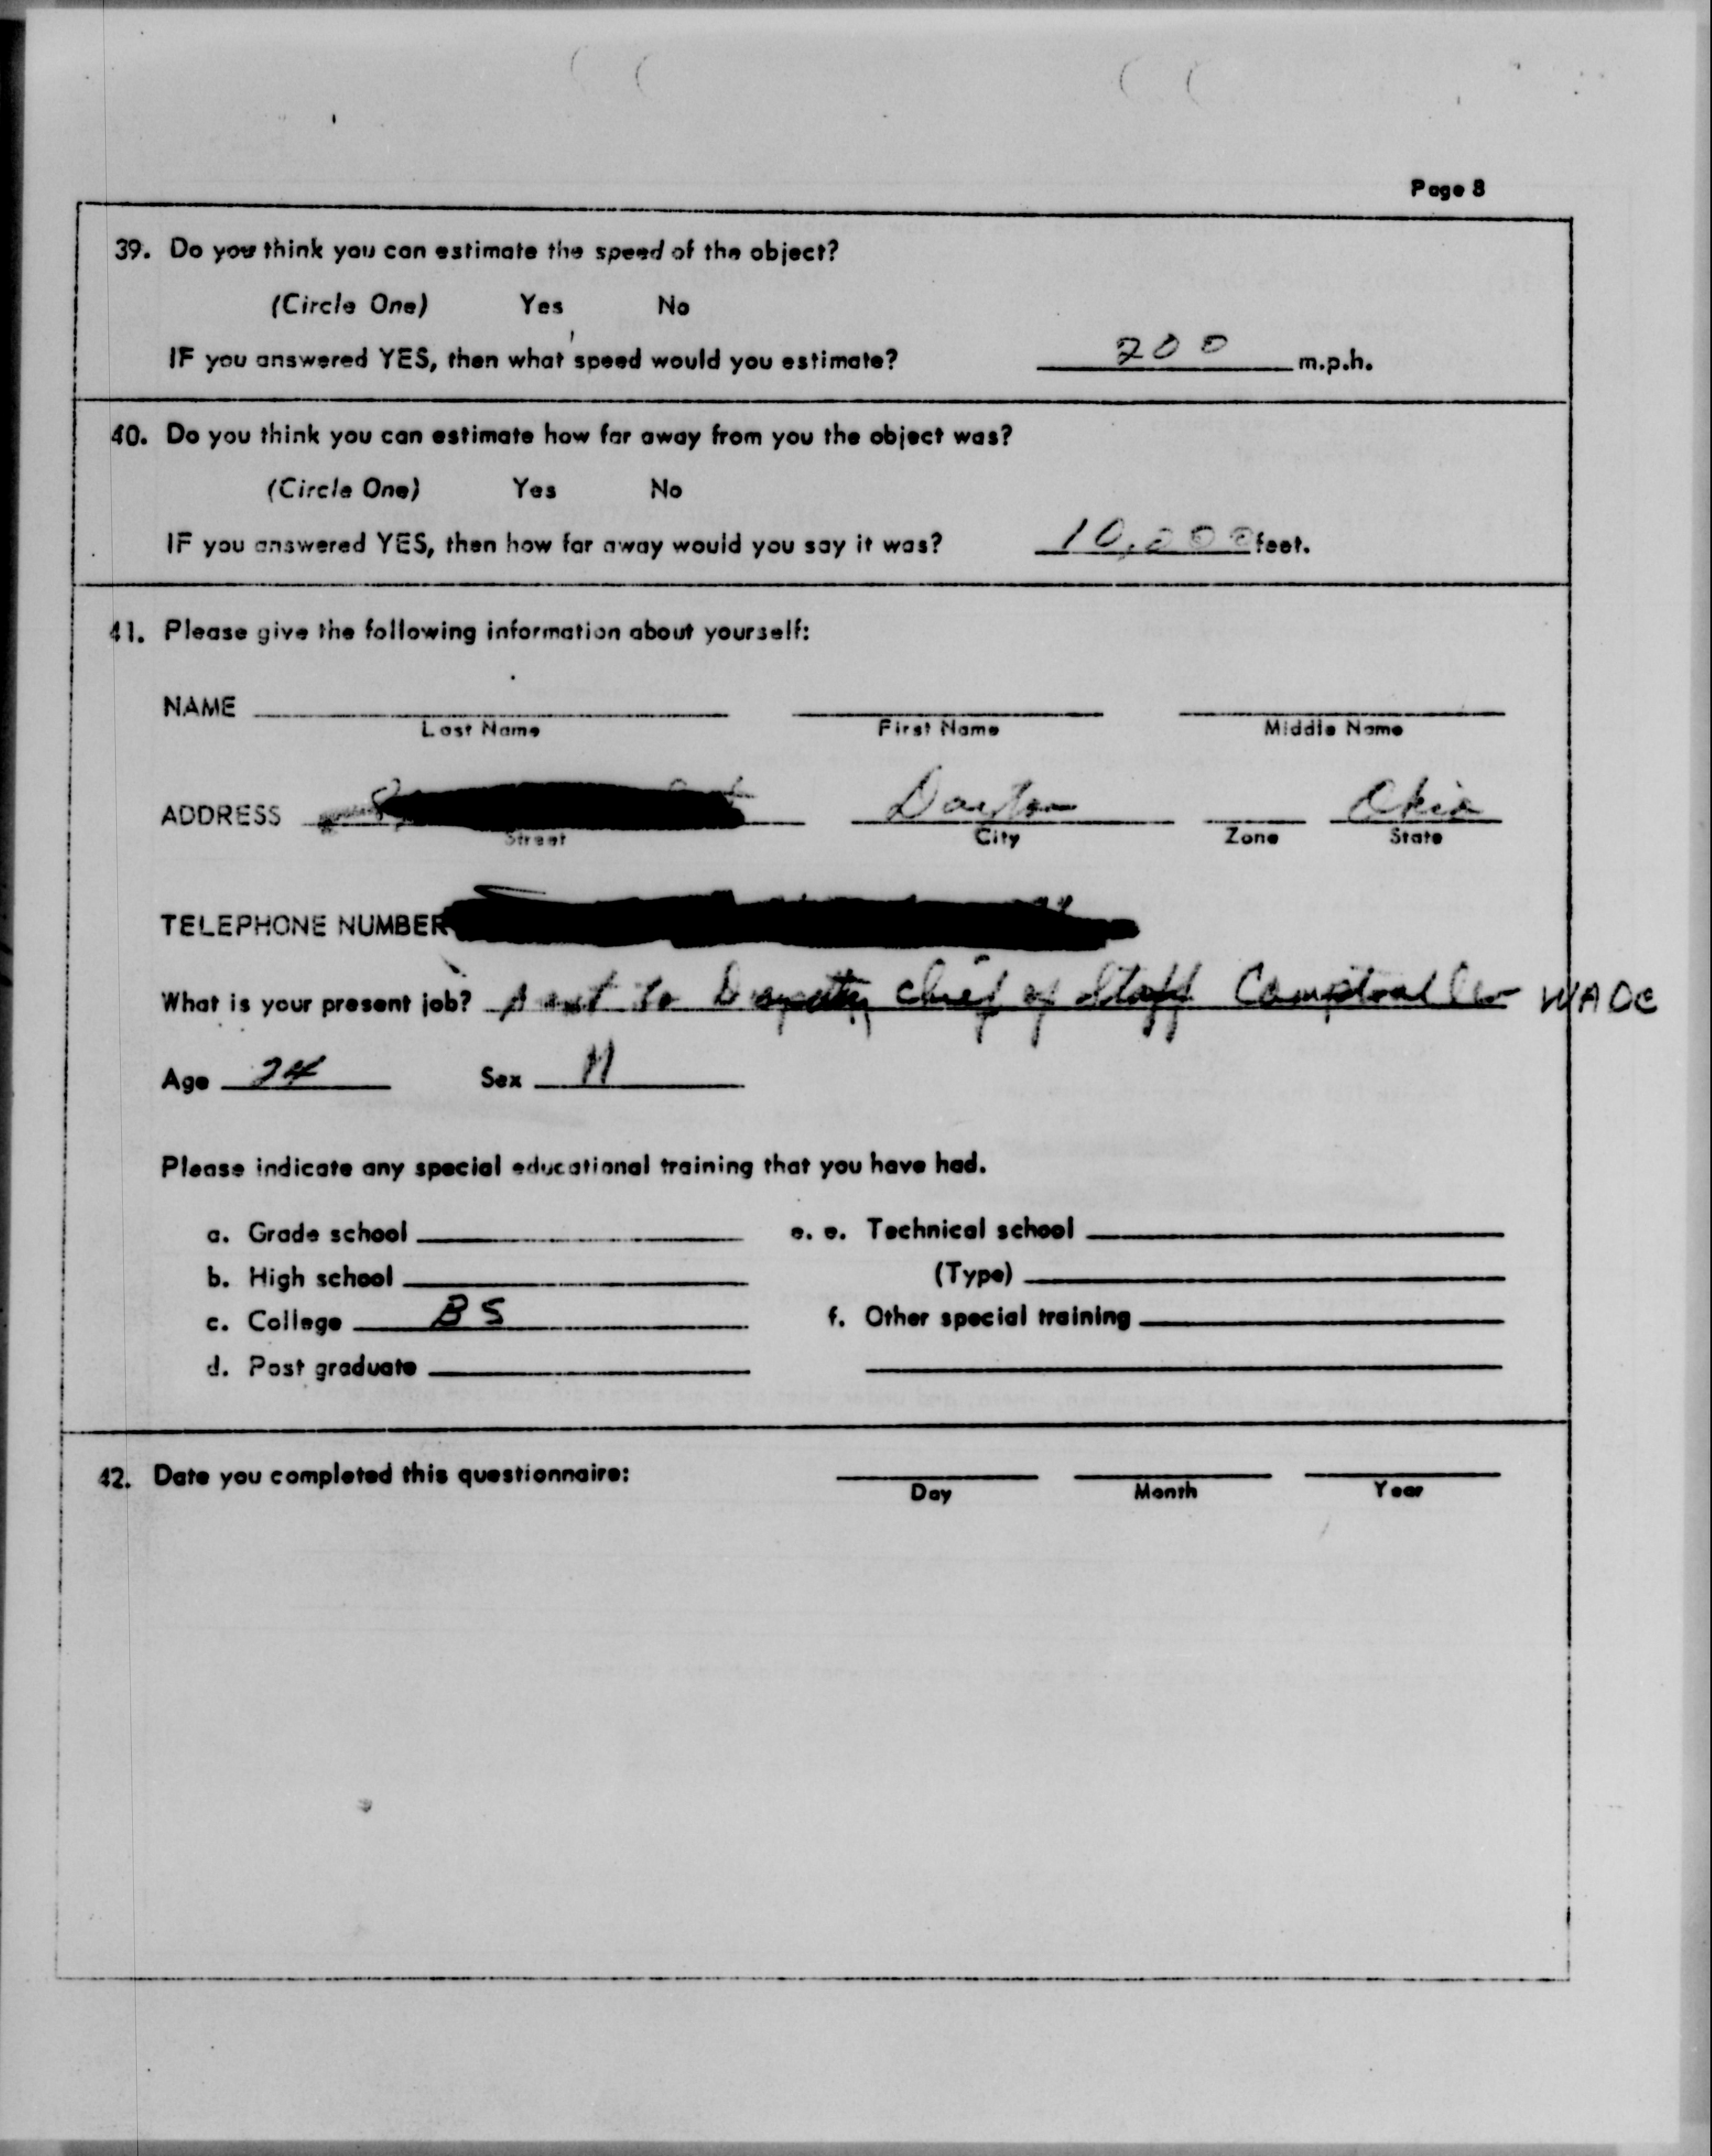 Page 8
39. Do you think you can estimate the speed of the object?
(Circle One) Yes No
IF you answered YES, then what speed would you estimate? 200 m.p.h.
40. Do you think you can estimate how far away from you the object was?
(Circle One) Yes No
IF you answered YES, then how far away would you say it was? 10,000 feet.
41. Please give the following information about yourself:
NAME
Last Name First Name Middle Name
ADDRESS Dayton Ohio
Street City Zone State
TELEPHONE NUMBER
What is your present job? to Deputy Chief of Staff Comptroller WADC
Age 24 Sex M
Please indicate any special educational training that you have had.
a. Grade school e. e. Technical school
b. High school (Type)
c. College BS f. Other special training
d. Post graduate
42. Date you completed this questionnaire:
Day Month Year